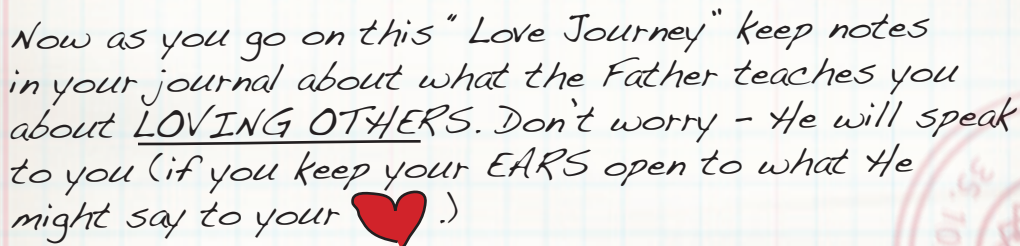 Now as you go on this "Love Journey" keep notes
in your journal about what the Father teaches you
about LOVING OTHERS. Don't worry - He will speak
to you (if you keep your EARS open to what He
might say to your ❤.)
35, 10